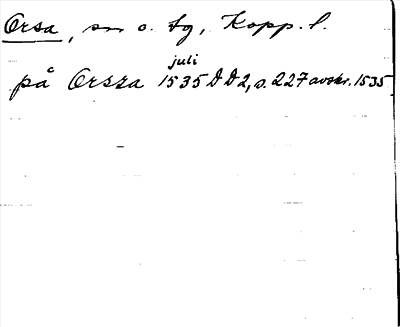 Orsa, sn o. tg, Kopp. l.
juli
på Orsza 1535 DD2, s. 227 avskr. 1535